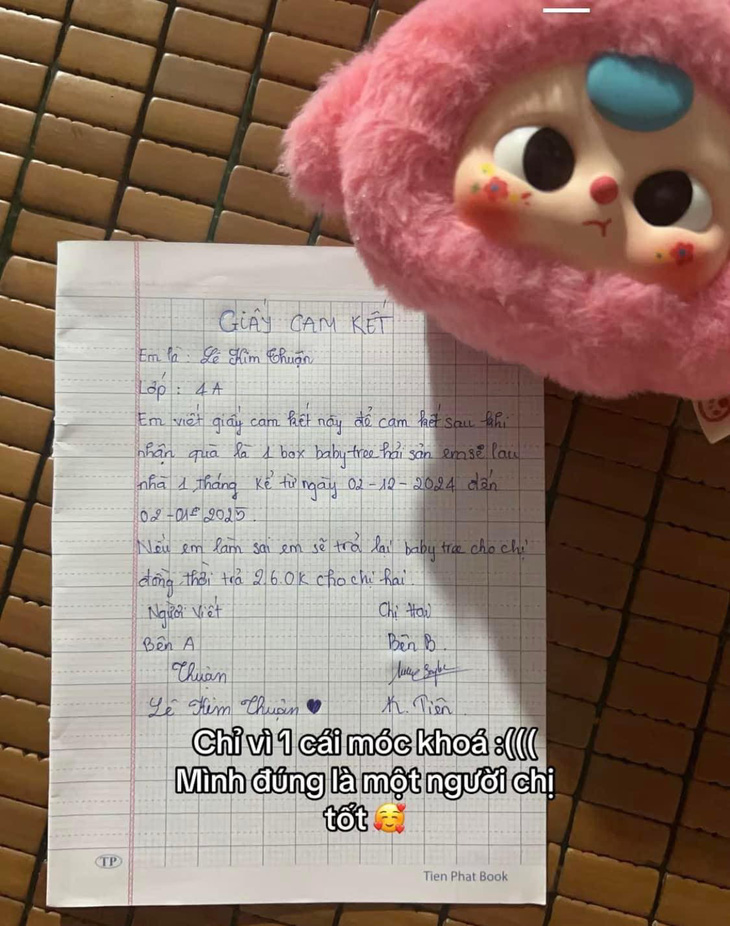 GIẤY CAM KẾT
Em là : Lê Kim Thuận
Lớp : 4A
Em viết giấy cam kết này để cam kết sau khi
nhận quà là 1 box babytree hải sản em sẽ lau
nhà 1 tháng kể từ ngày 02-12-2024 đến
02-01-2025.
Nếu em làm sai em sẽ trả lại baby tree cho chị
đồng thời trả 260k cho chị hai.
Người viết Chị Hai
Bên A Bên B.
Thuận
Lê Kim Thuận ♥ K. Tiên
Chỉ vì 1 cái móc khoá :(((
Mình đúng là một người chị
tốt 🥰
TP
Tien Phat Book